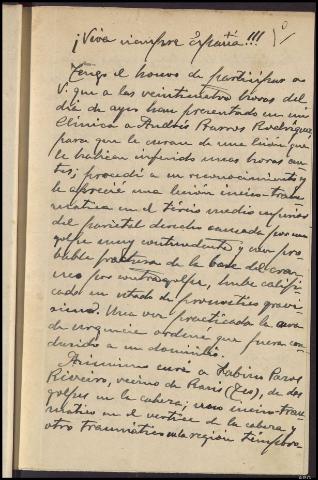 ¡Viva siempre España!!!
Tengo el honor de participar a
V. que a las veinticuatro horas del
día de ayer han presentado en mi
Clínica a Andrés Barros Rodríguez
para que le curara de una lesión que
le habían inferido unas horas an-
tes; procedí a su reconocimiento y
le aprecié una lesión inciso-trau-
mática en el tercio medio
del parietal derecho causada por un
golpe muy contundente y con pro-
bable fractura de la base del crá-
neo por contragolpe, hube califi-
cado en estado de pronóstico graví-
simo. Una vez practicada la cura
de urgencia ordené que fuera con-
ducido a su domicilio.
Asimismo curé a Sabino Paros
Riveiro, vecino de de dos
golpes en la cabeza; uno inciso-trau-
mático en el vértice de la cabeza y
otro traumático en la región temporo